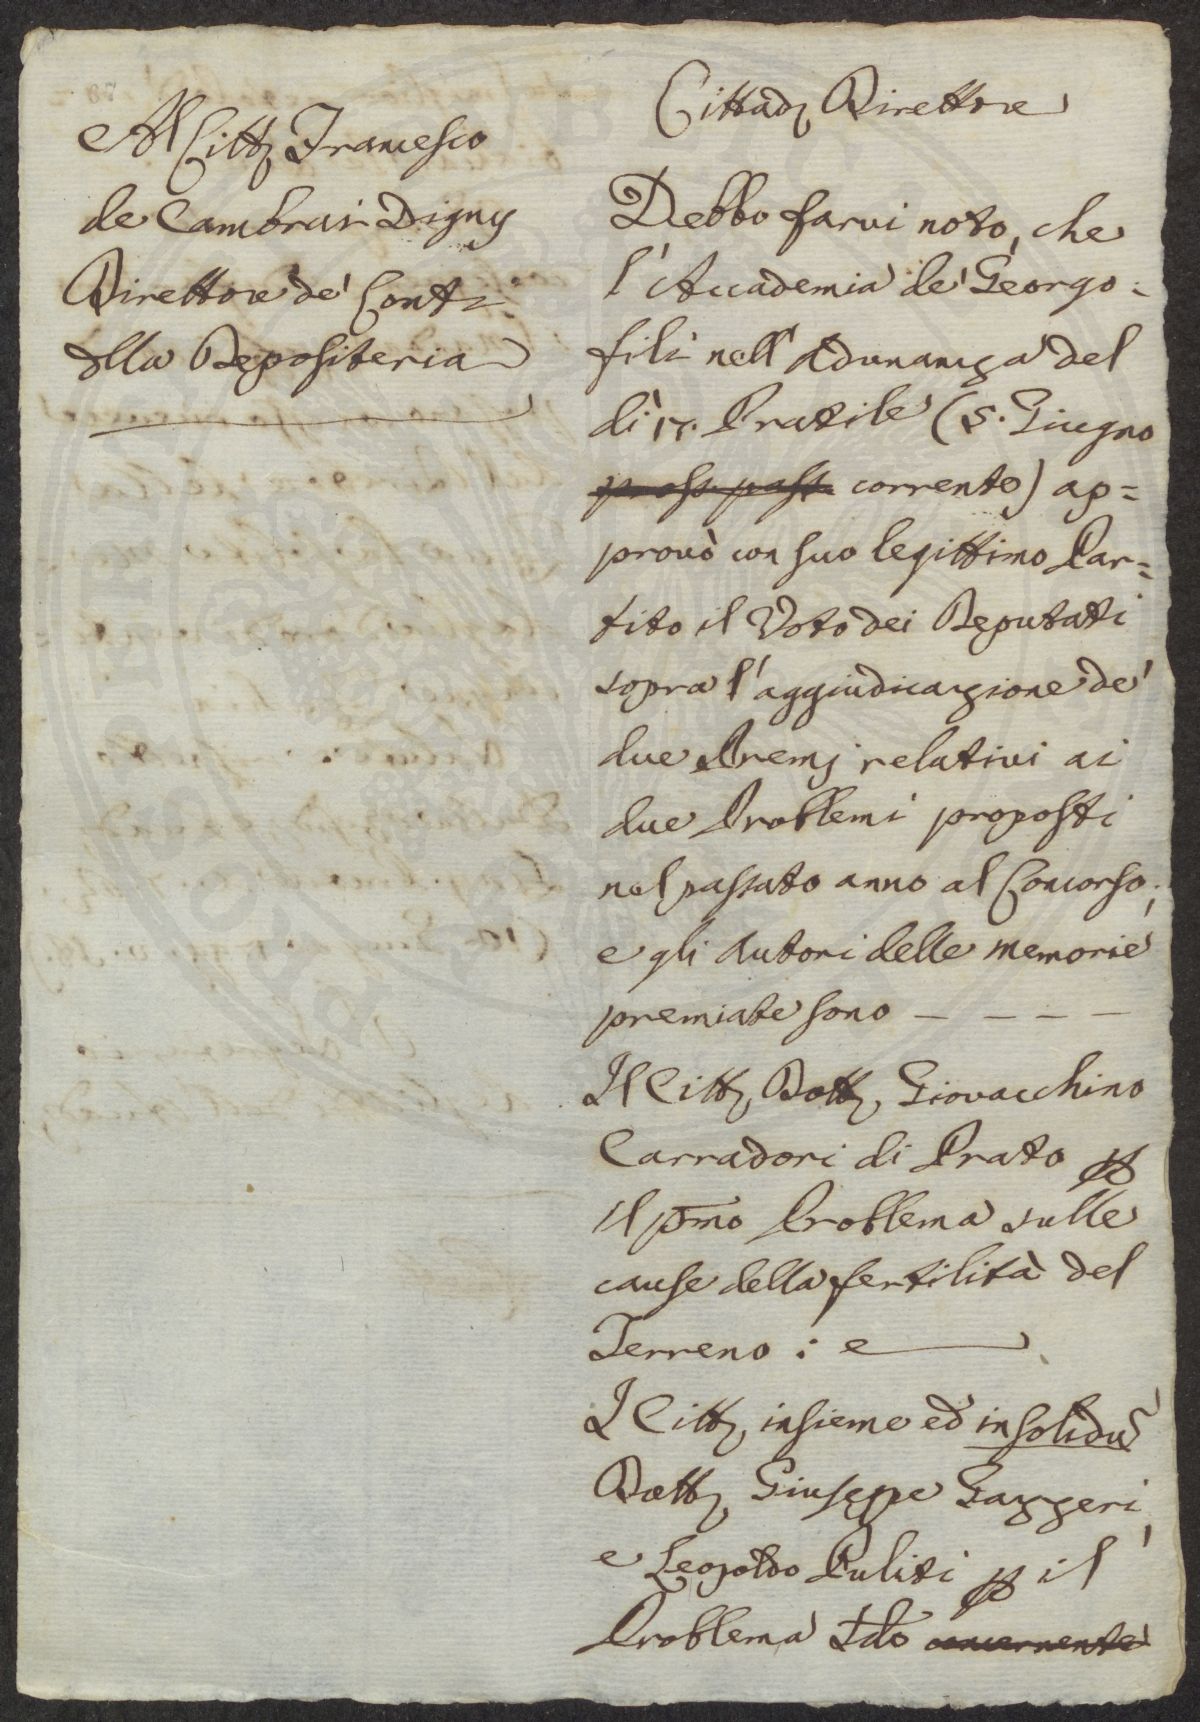 Al Citt. Francesco
de Cambrai Digny
Direttore de' Conti
della Depositeria
Cittad. Direttore
Debbo farvi noto, che
l'Accademia de' Georgo=
fili nell'Adunanza del
dì 17. Pratile (5. Giugno
pross. pass. corrente) ap=
provò con suo legittimo Par=
tito il Voto dei Deputati
sopra l'aggiudicazione de'
due Premj relativi ai
due Problemi proposti
nel passato anno al Concorso,
e gli Autori delle memorie
premiate sono - - - -
Il Citt. Dott. Giovacchino
Carradori di Prato p
il pmo Problema sulle
cause della fertilità del
Terreno : e
I Citt. insieme ed insolidũ
Dott. Giuseppe Gazzeri,
e Leopoldo Puliti p il
Problema 2do concernente